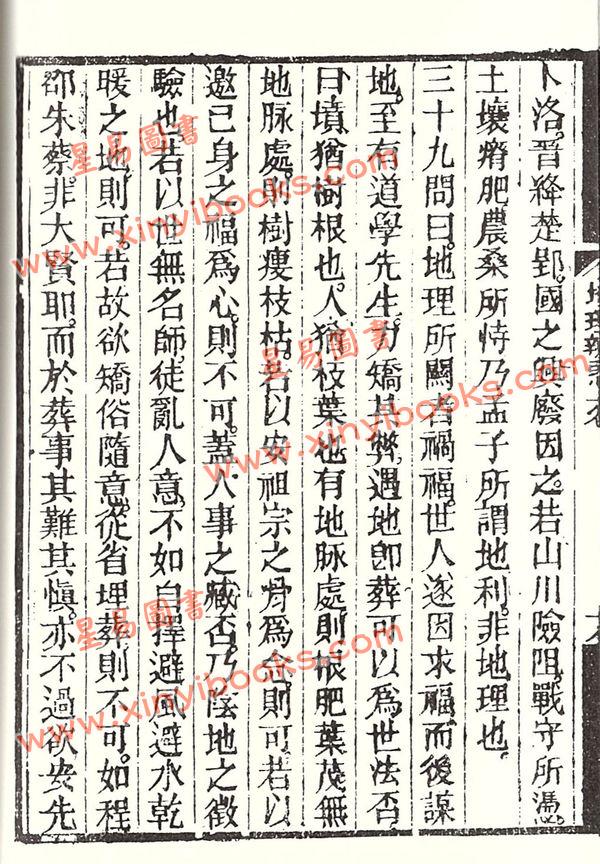 卜洛。晉絳楚郢。國之興廢因之。若山川險阻。戰守所憑。
土壤瘠肥。農桑所恃。乃孟子所謂地利。非地理也。
三十九問曰。地理所關者禍福。世人遂因求福。而後謀
地。至有道學先生。力矯其弊。遇地卽葬。可以爲世法否。
曰。墳猶樹根也。人猶枝葉也。有地脉處。則根肥葉茂。無
地脉處。則樹瘦枝枯。若以安祖宗之骨爲念則可。若以
邀己身之福爲心。則不可。蓋人事之臧否。乃陰地之徵
驗也。若以世無名師。徒亂人意。不如自擇避風避水乾
暖之地則可。若故欲矯俗隨意。從省埋葬。則不可。如程
邵朱蔡。非大賢耶。而於葬事其難其愼。亦不過欲安先
星易圖書
www.xinyibooks.com
星易圖書
www.xinyibooks.com
星易圖書
www.xinyibooks.com